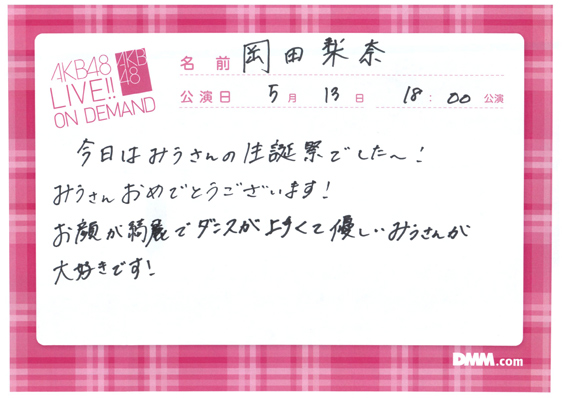 AKB48
LIVE!!
ON DEMAND
AKB
48
名前 岡田梨奈
公演日 5月13日 18:00公演
今日はみうさんの生誕祭でした〜!
みうさんおめでとうございます!
お顔が綺麗でダンスが上手くて優しいみうさんが
大好きです!
DMM.com